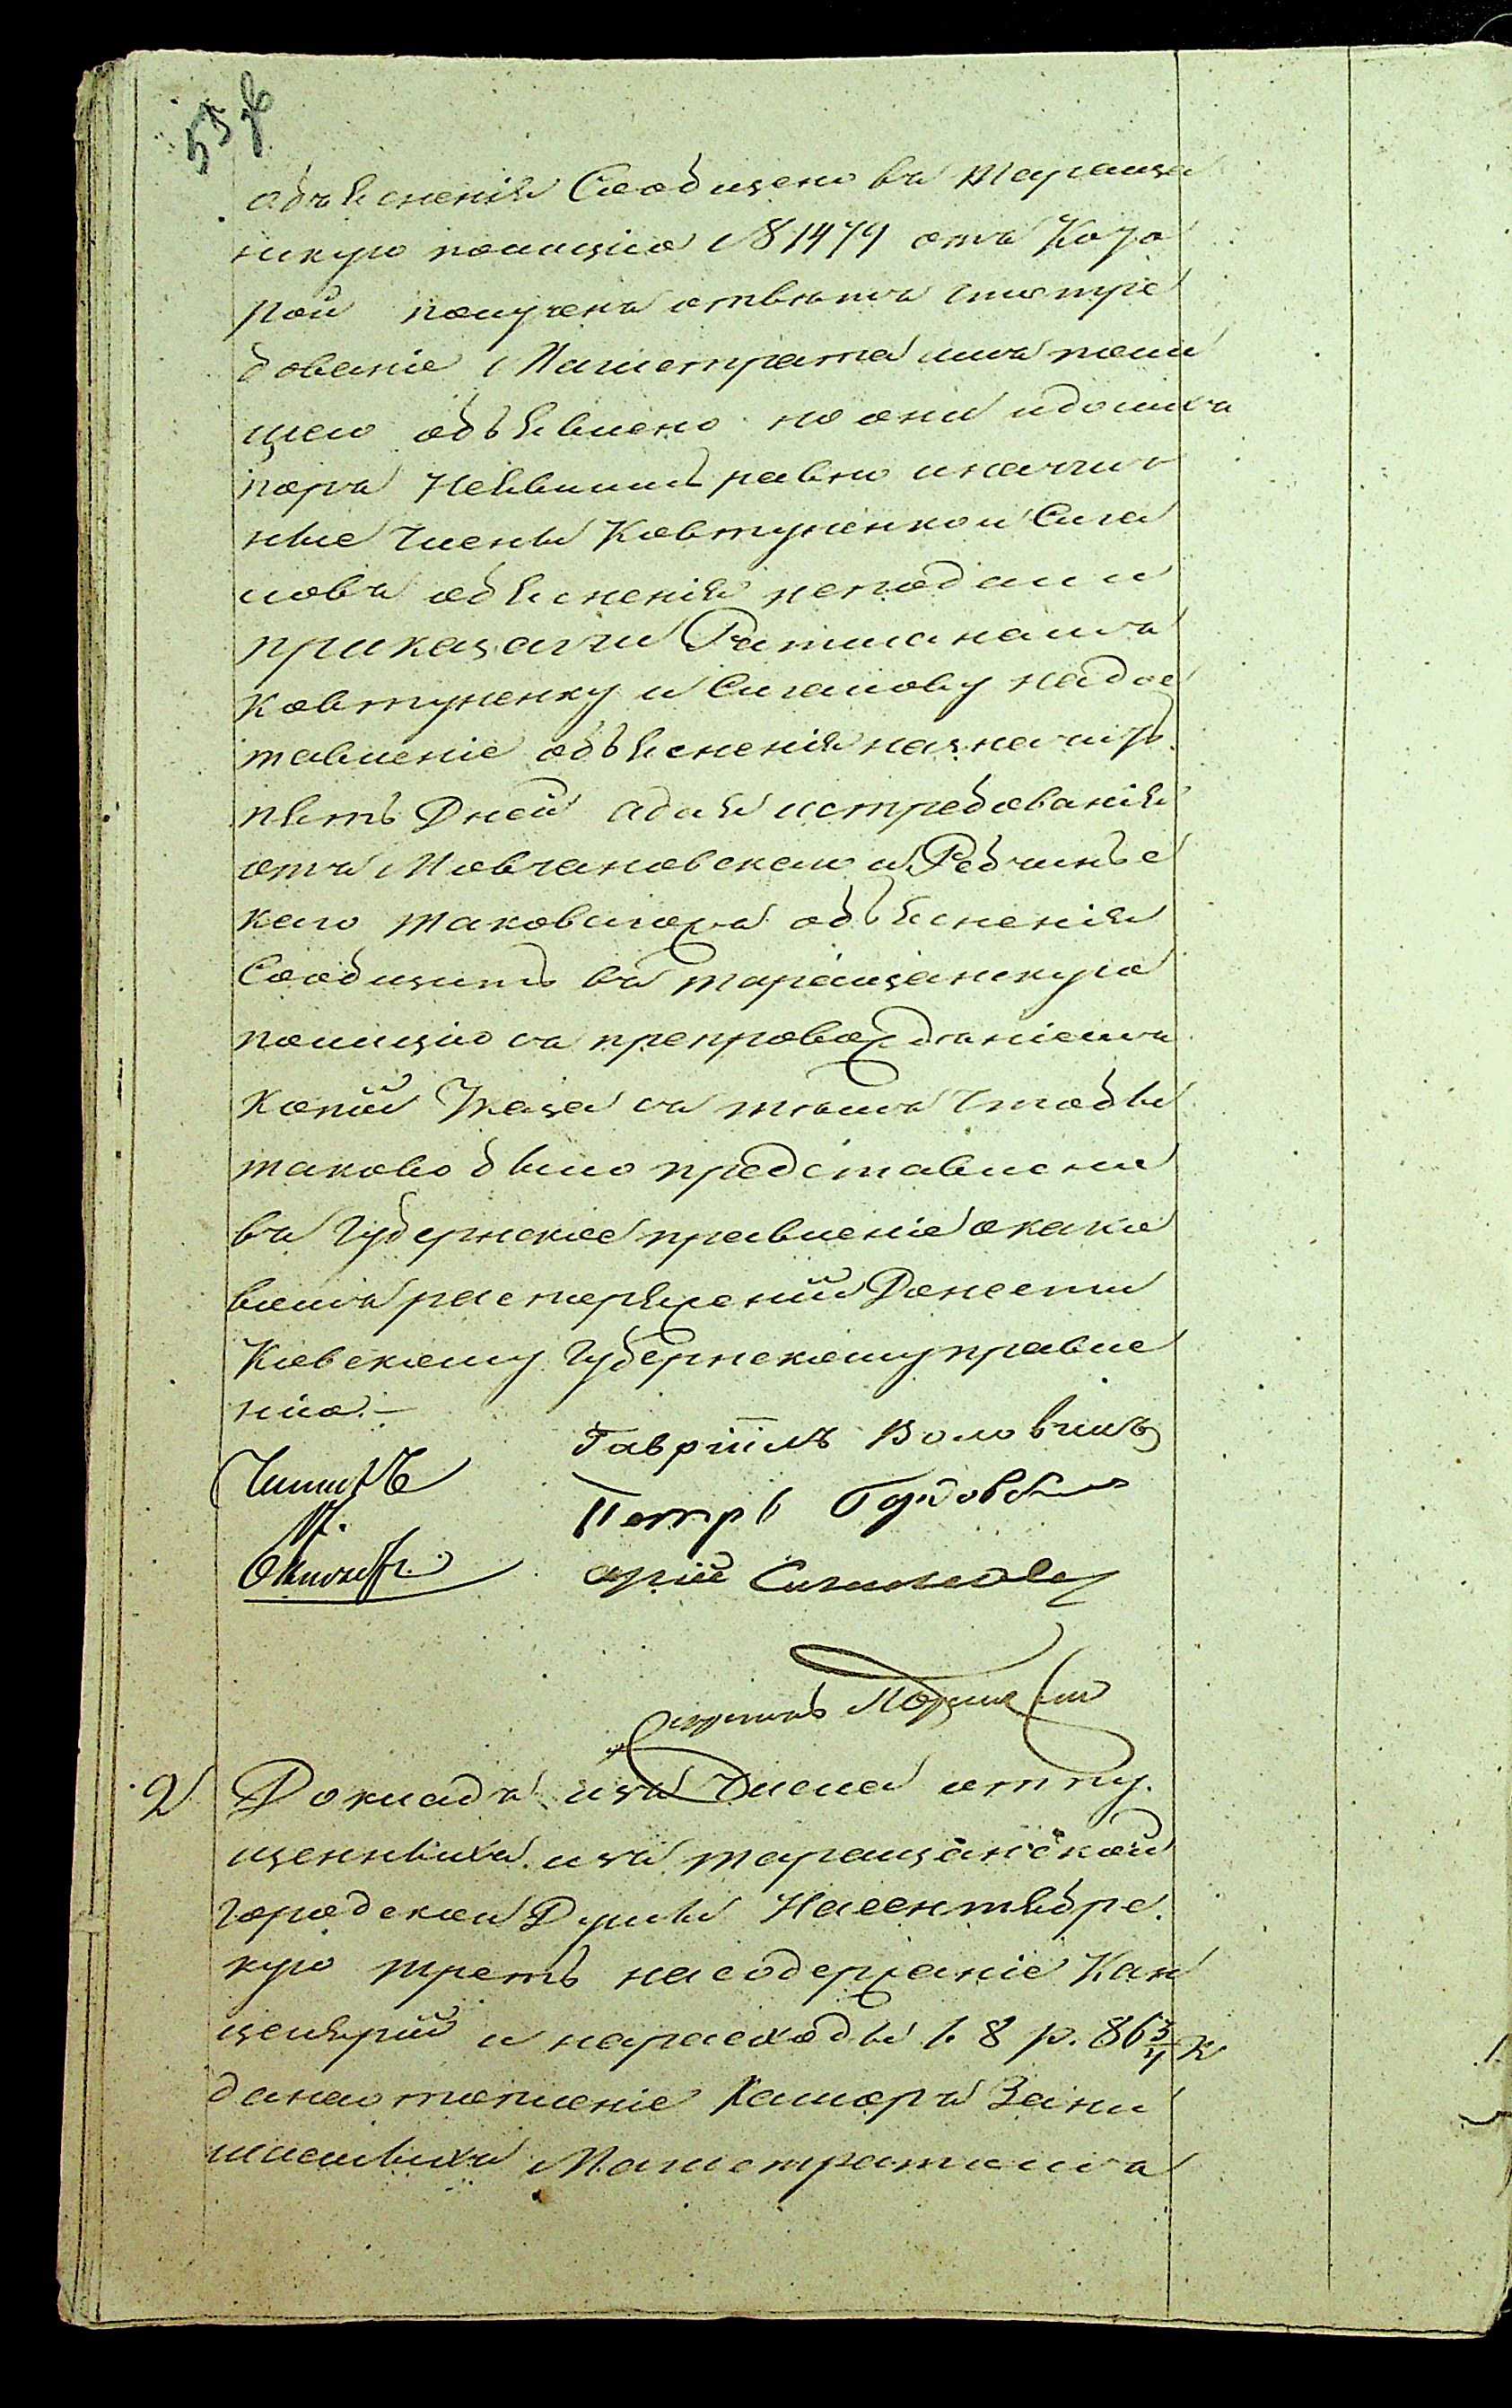 объясненія Сообщено въ Тараща
нскую полицію № 1479 отъ Кото
рой полученъ отвѣтъ что тре
бованіе Магистрата имъ поли
циею объявлено но они и до сихъ
поръ неявились равно и налич
ные Члены Ковтуненко и Сига
ловъ объясненія неподали
приказали Ратманамъ
Ковтуненку и Сигалову на дос
тавленіе объясненія назначить
пять Дней а для истребованія
отъ Мовчановскаго и Рабчинъс
каго таковыхъ объясненія
Сообщить въ таращанскую
полицію съ препровожденіемъ
копіи Указа съ тѣмъ Чтобы
таково было представлено
въ Губернское правленіе о како
вомъ распоряженіи Донести
Кіевскому Губернскому правле
нію.
Гавріилъ Воловикъ
Петръ
2 Докладъ изъ Числа отпу
щенныхъ изъ таращанской
городской Думы На сентябрс
кую треть на содержаніе Кан
целяріи и на расходы 18 р. 86 3/4 к
да на отопленіе Камеръ Зани
маемыхъ Магистратомъ